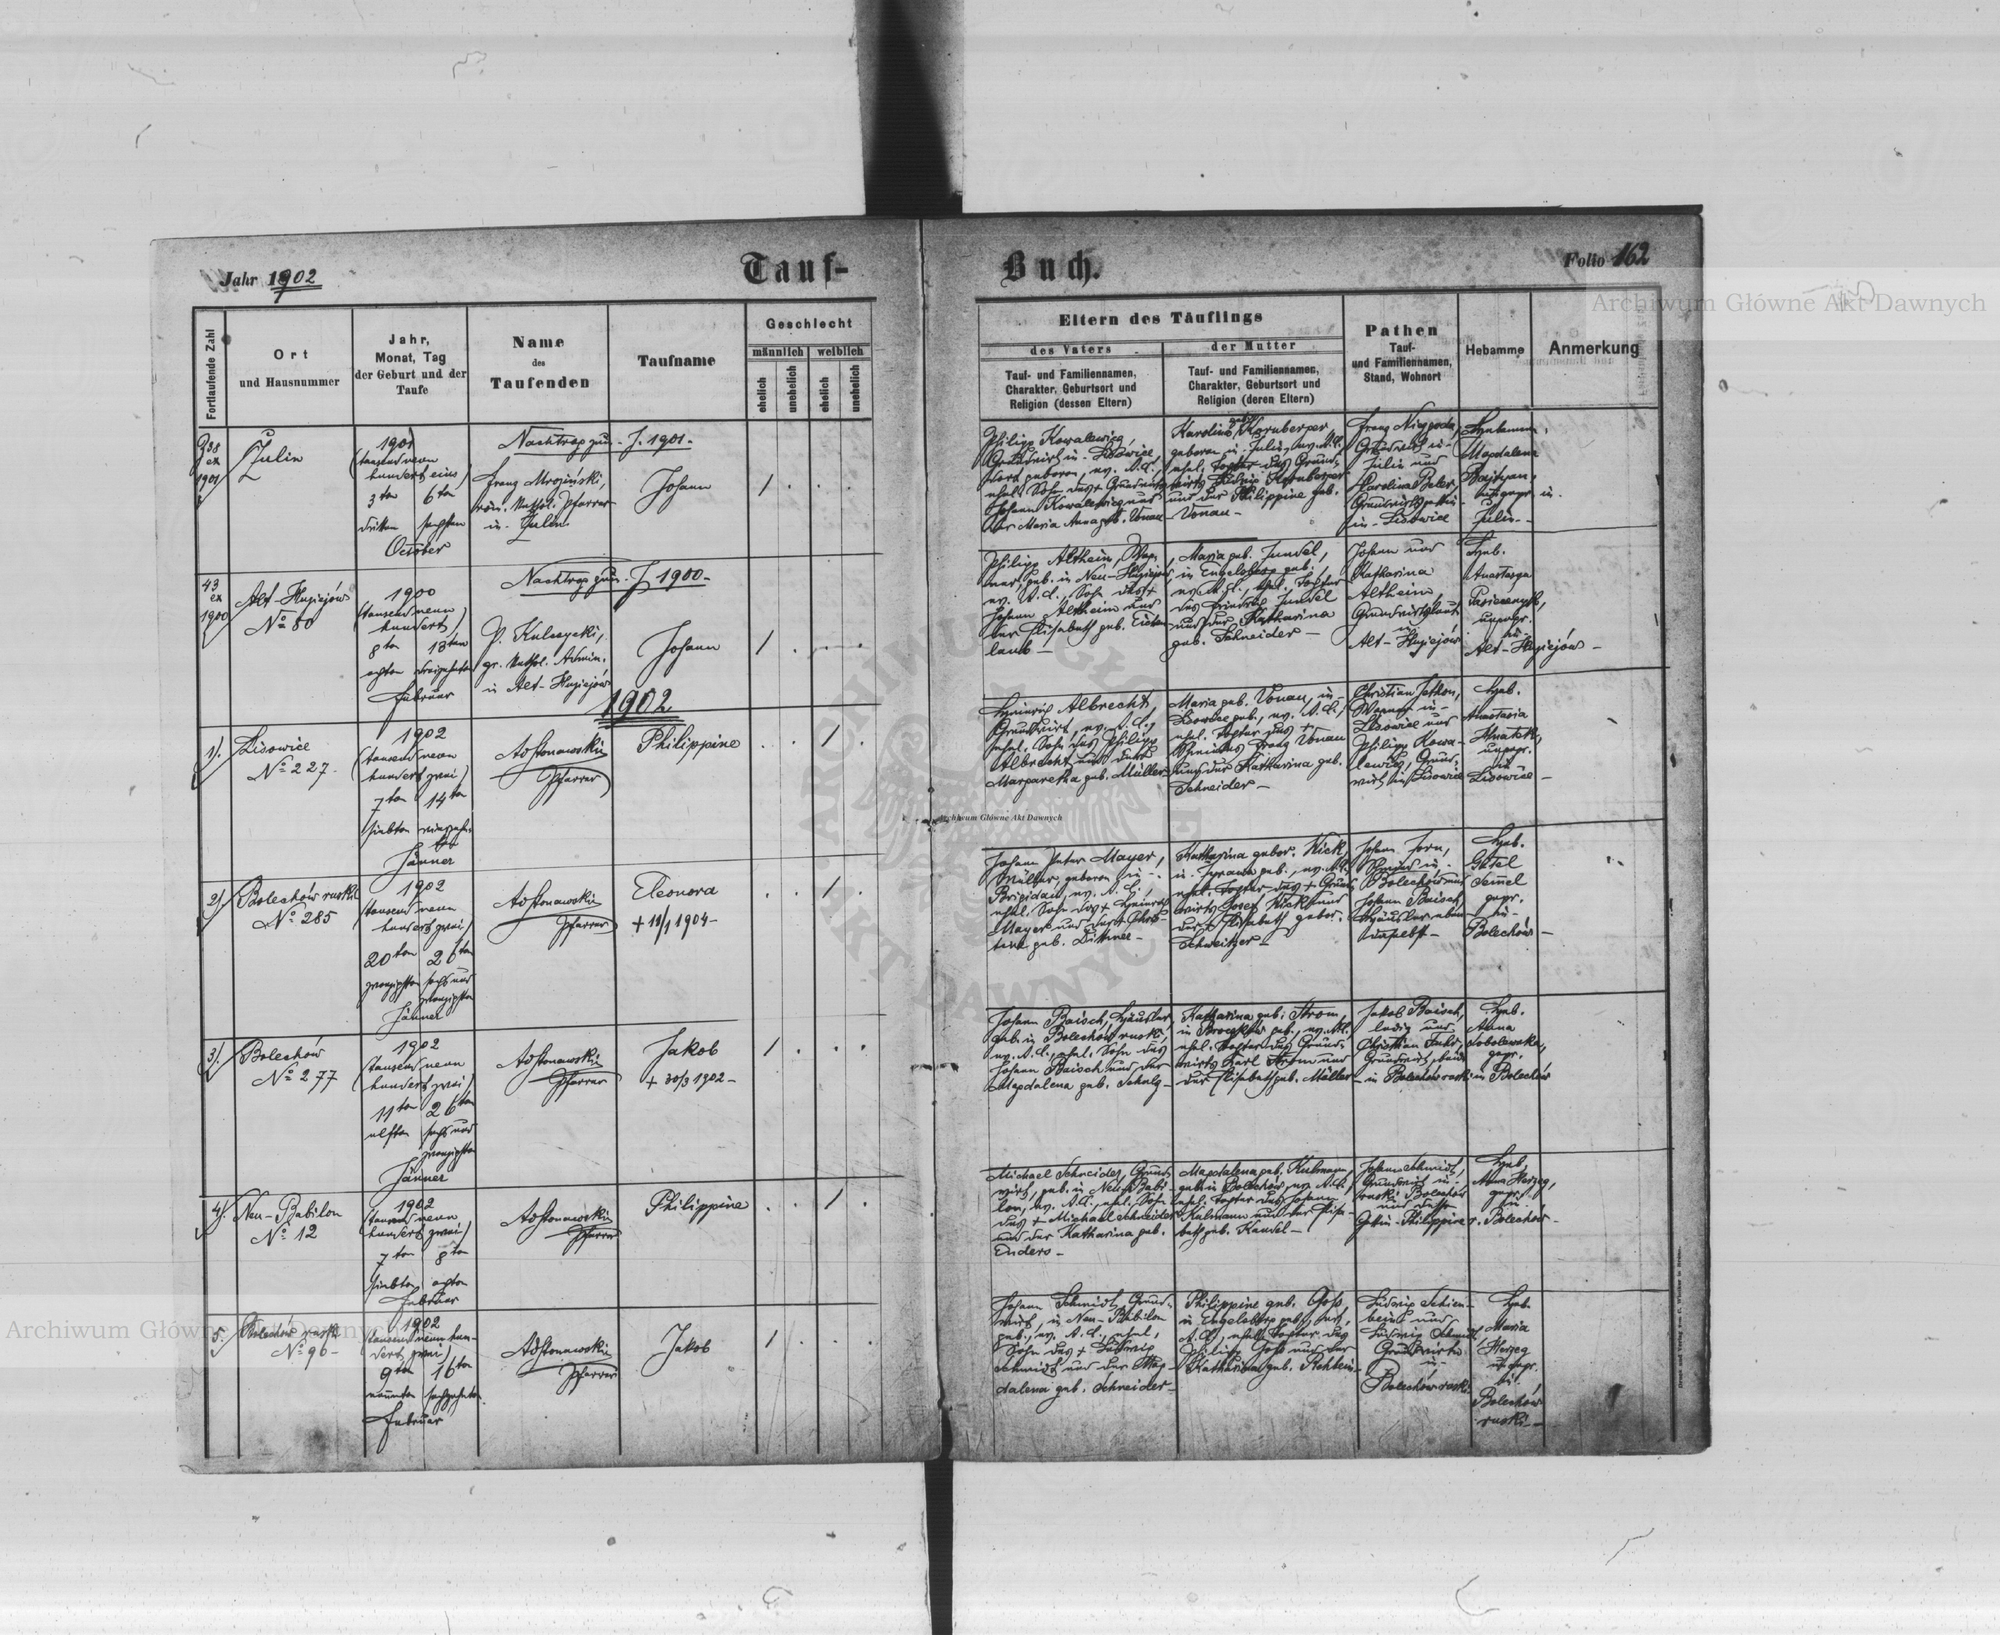 Jahr 1902
Tauf-
Buch.
Folio 162
Archiwum Główne Akt Dawnych
Fortlaufende Zahl
Ort
und Hausnummer
Jahr,
Monat, Tag
der Geburt und der
Taufe
Name
des
Taufenden
Taufname
Geschlecht
männlich
weiblich
ehelich
unehelich
ehelich
unehelich
Eltern des Täuflings
des Vaters
Tauf- und Familiennamen,
Charakter, Geburtsort und
Religion (dessen Eltern)
der Mutter
Tauf- und Familiennamen,
Charakter, Geburtsort und
Religion (deren Eltern)
Pathen
Tauf-
und Familiennamen,
Stand, Wohnort
Hebamme
Anmerkung
38
ex
1901
Julin
1901
(tausend neun
hundert eins)
3ten 6ten
dritten sechsten
October
Nachtrag zum J. 1901.
Franz Mroziński,
röm. kathol. Pfarrer
in Julin
Johann
Philipp Kowalewicz,
Grundwirt in Lisowice,
dort geboren, ev. A.C.,
ehel. Sohn des + Grundwirts
Johann Kowalewicz und
der Maria Anna geb. Vonau
Karolina geb. Kornberger
geboren in Julin, ev. A.C.
ehel. Tochter des Grund-
wirts Ludwig Kornberger
und der Philippine geb.
Vonau
Franz Niezgoda,
Grundwirt in
Julin und
Karolina Beler
Grundwirtsgattin
in Lisowice
Hebamme
Magdalena
ungepr. in
Julin
43
ex
1900
Alt-Huziejów
No 80
1900
(tausend neun
hundert)
8ten 13ten
achten dreizehnten
Februar
Nachtrag zum J. 1900
P. Kulczycki,
gr. kathol. Admin.
in Alt-Huziejów
Johann
Philipp Altheim, Wag-
ner, geb. in Neu-Huziejów
ev. A.C., Sohn des +
Johann Altheim und
der Elisabeth geb.
Maria geb. Jundel,
in Engelsberg geb.,
ev. A.C., ehel. Tochter
des Friedrich Jundel
und der Katharina
geb. Schneider
Johann und
Katharina
Altheim,
Grundwirtsleute
in
Alt-Huziejów
Heb.
Anastazya
ungepr.
in
Alt-Huziejów
1902
1).
Lisowice
No 227.
1902
(tausend neun
hundert zwei)
7ten 14ten
siebten vierzehn-
ten
Jänner
Adstonawski
Pfarrer
Philippine
Heinrich Albrecht,
Grundwirt, ev. A.C.,
ehel. Sohn des Philipp
Albrecht und der
Margaretha geb. Müller
Maria geb. Vonau, in
Lisowice geb., ev. A.C.,
ehel. Tochter des +
Franz Vonau
und der Katharina geb.
Schneider
Christian Jethon,
Wagner in
Lisowice und
Philipp Kowa-
lewicz, Grund-
wirt in Lisowice
Heb.
Anastasia
ungepr.
in
Lisowice
2)
Bolechów ruski
No 285
1902
(tausend neun
hundert zwei)
20ten 26ten
zwanzigsten sechs und
zwanzigsten
Jänner
Adstonawski
Pfarrer
Eleonora
+ 11/1 1904
Johann Peter Mayer,
Müller, geboren in
Brigidau, ev. A.C.,
ehel. Sohn des + Heinrich
Mayer und der + Chris-
tine geb. Dittmer
Katharina gebor. Kick,
in Tyrawa geb., ev. A.C.
ehel. Tochter des + Grund-
wirts Josef Kick und
der + Elisabeth gebor.
Schweitzer
Johann Jorn,
in
Bolechów und
Johann Baisch,
Häusler eben-
daselbst
Heb.
Gütel
Semmel
gepr.
in
Bolechów
3).
Bolechów
No 277
1902
(tausend neun
hundert zwei)
11ten 26ten
elften sechs und
zwanzigsten
Jänner
Adstonawski
Pfarrer
Jakob
+ 30/3 1902
Johann Baisch, Häusler,
geb. in Bolechów ruski,
ev. A.C., ehel. Sohn des
Johann Baisch und der
Magdalena geb. Schulz
Katharina geb. Strom,
in Broczków geb., ev. A.C.
ehel. Tochter des Grund-
wirts Karl Strom und
der Elisabeth geb. Müller
Jakob Baisch,
ledig und
Christian Fuhr,
Grundwirt, beide
in Bolechów ruski
Heb.
Anna
Sobolewska,
gepr.
in Bolechów
4).
Neu-Babilon
No 12
1902
(tausend neun
hundert zwei)
7ten 8ten
siebten achten
Februar
Adstonawski
Pfarrer
Philippine
Michael Schneider, Grund-
wirt, geb. in Neu-Babi-
lon, ev. A.C., ehel. Sohn
des + Michael Schneider
und der Katharina geb.
Enders
Magdalena geb. Kulmann,
geb. in Bolechów, ev. A.C.,
ehel. Tochter des Johann
Kulmann und der Elisa-
beth geb. Kandel
Johann Schmidt,
Grundwirt in
ruski Bolechów
und dessen
Gattin Philippine
Heb.
Anna Herzeg,
gepr.
in
r. Bolechów
5.
Bolechów ruski
No 96
1902
(tausend neun hun-
dert zwei)
9ten 16ten
neunten sechzehnten
Februar
Adstonawski
Pfarrer
Jakob
Johann Schmidt, Grund-
wirt, in Neu-Babilon
geb., ev. A.C., ehel.
Sohn des + Ludwig
Schmidt und der Mag-
dalena geb. Schneider
Philippine geb. Goss
in Engelsberg geb., ev.
A.C., ehel. Tochter des
Philipp Goss und der
Katharina geb. Stehlein
Ludwig Schien-
bein und
Ludwig Schmidt,
Grundwirte
in
Bolechów ruski
Heb.
Maria
Herzeg
ungepr.
in
Bolechów
ruski
Archiwum Główne Akt Dawnych
Archiwum Główne Akt Dawnych
ARCHIWUM GŁÓWNE AKT DAWNYCH